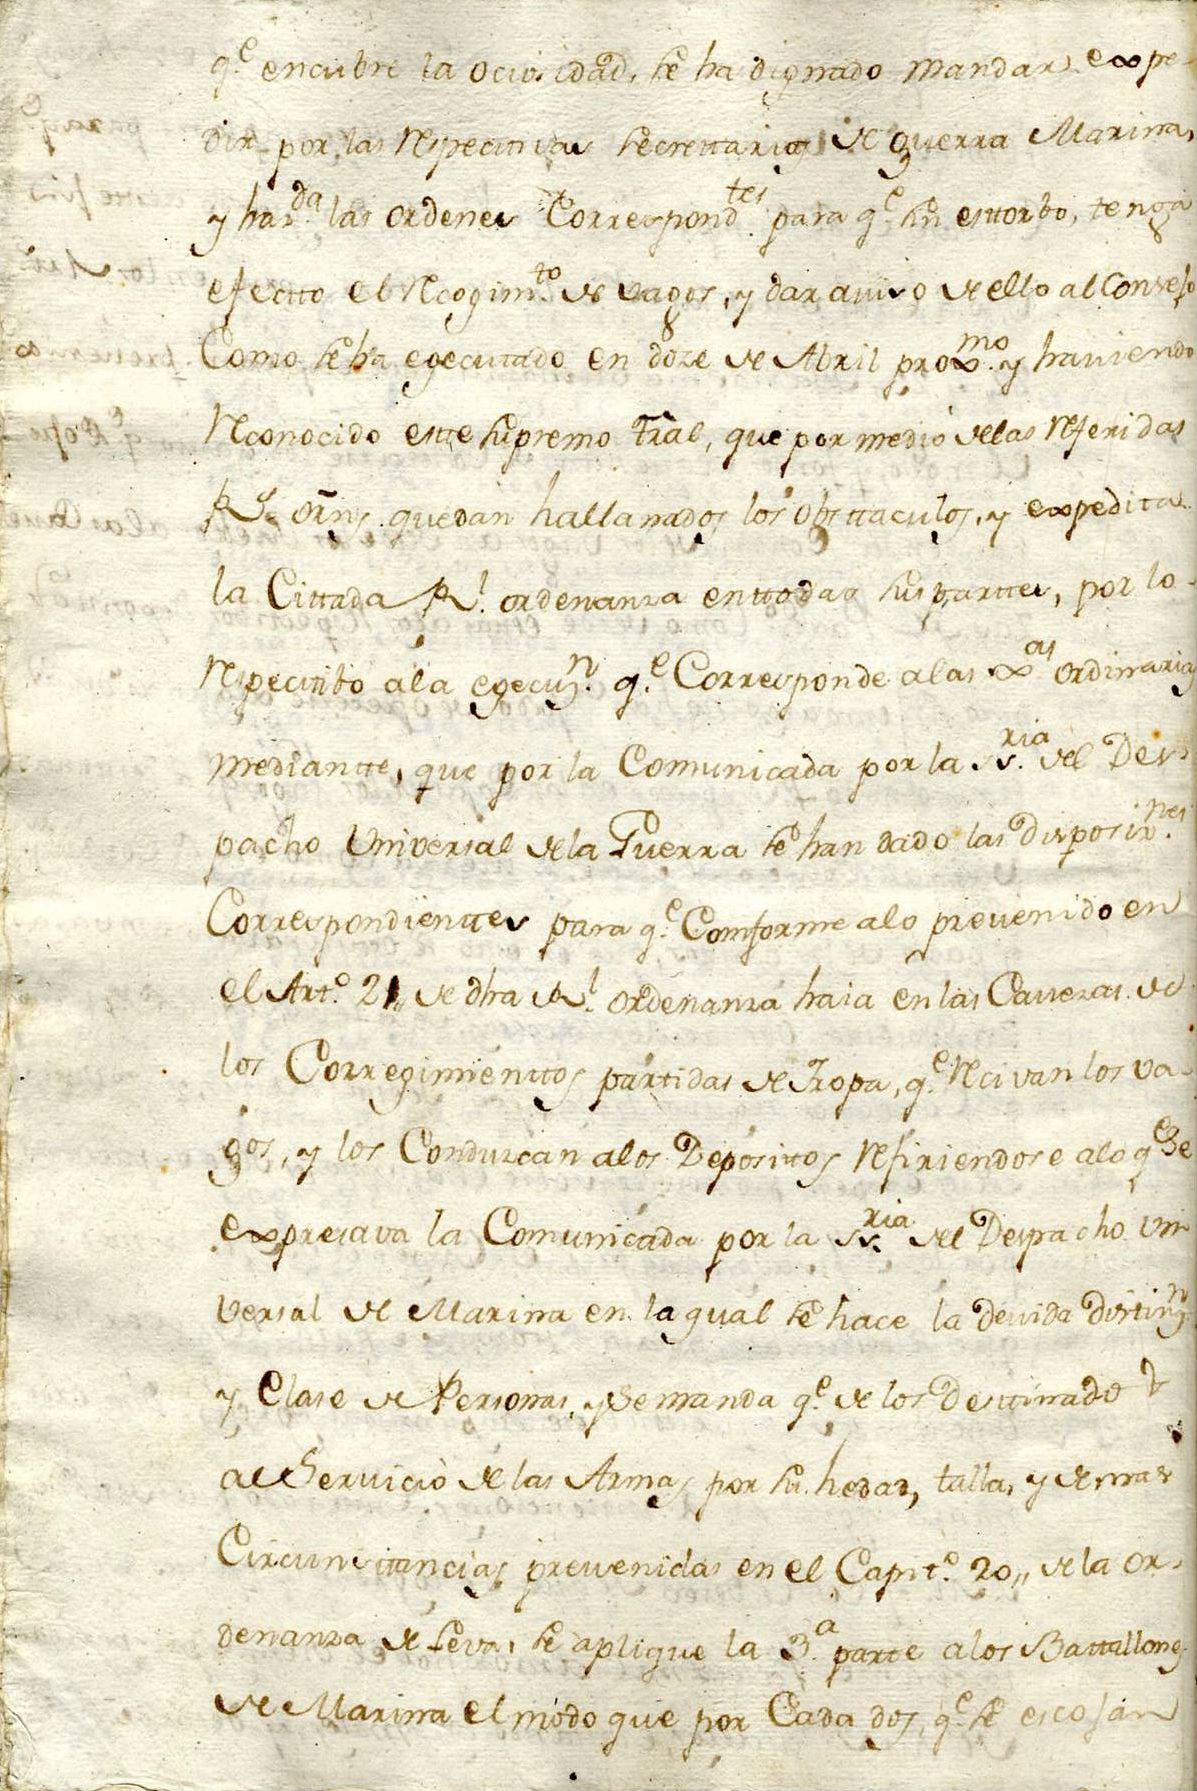 q.e encubre la ociosidad, se ha dignado mandar expe-
dir por las respectivas secrettarias de guerra Marina,
y haz.da las ordenes Correspond.tes para q.e sin esttorbo, tenga
efectto el recogim.to de vagos, y dar aviso de ello al Consejo
Como se ha egecuttado en doze de Abril prox.mo y haviendo
reconocido este supremo tral, que por medio de las referidas
R.s orns. quedan hallanados los obsttaculos, y expedita
la Cittada R.l ordenanza en ttodas sus parttes, por lo
respecttibo a la egecuz.n q.e Corresponde a las xx.as ordinarias
mediantte, que por la Comunicada por la ss.ria del Des-
pacho Universal de la Guerra se han dado las disposiz.nes
Correspondienttes para q.e Comforme a lo prevenido en
el Art.o 21,, de dha R.l ordenanza haia en las Cavezas de
los Corregimienttos partidas de Tropa, q.e recivan los va-
gos, y los Conduzcan a los Deposittos refiriendose a lo q.e se
expresava la Comunicada por la ss.ria del Despacho Uni
versal de Marina en la qual se hace la devida disttinz.n
y Clase de Personas, y se manda q.e de los Desttinados
al Servicio de las Armas por su hedad, talla, y demas
Circunsttancias prevenidas en el Capit.o 20,, de la or-
denanza de Leva, se aplique la 3.a parte a los Battallones
de Marina el modo que por Cada dos, q.e se escojan